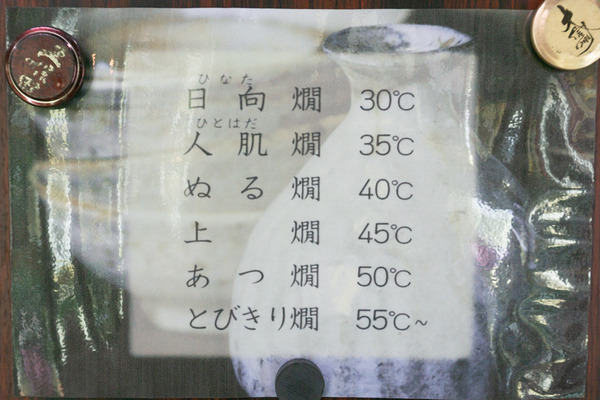 ひなた
日向燗 30℃
ひとはだ
人肌燗 35℃
ぬる燗 40℃
上燗 45℃
あつ燗 50℃
とびきり燗 55℃~